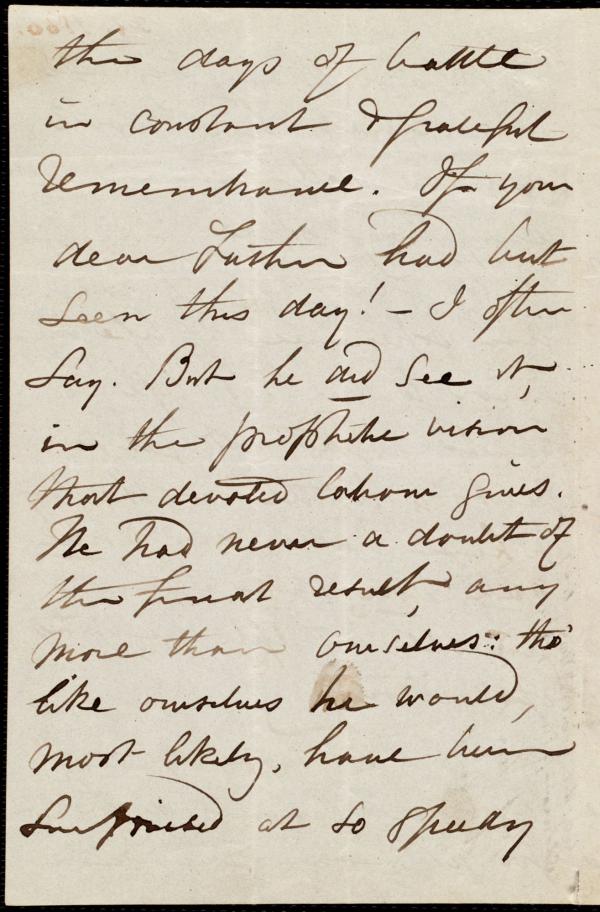 the days of battle
in constant & grateful
remembrance. If your
dear Father had but
seen this day! - I often
say. But he did see it,
in the prophetic vision
that devoted labour gives.
He had never a doubt of
the final result, any
more than ourselves: tho'
like ourselves he would,
most likely, have been
surprised at so speedy